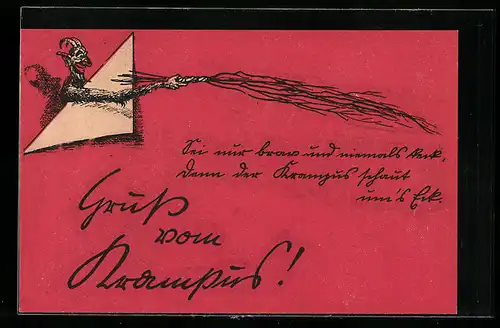 Sei nur brav und niemals keck,
Denn der Krampus schaut
um's Eck.
Gruß
vom
Krampus!